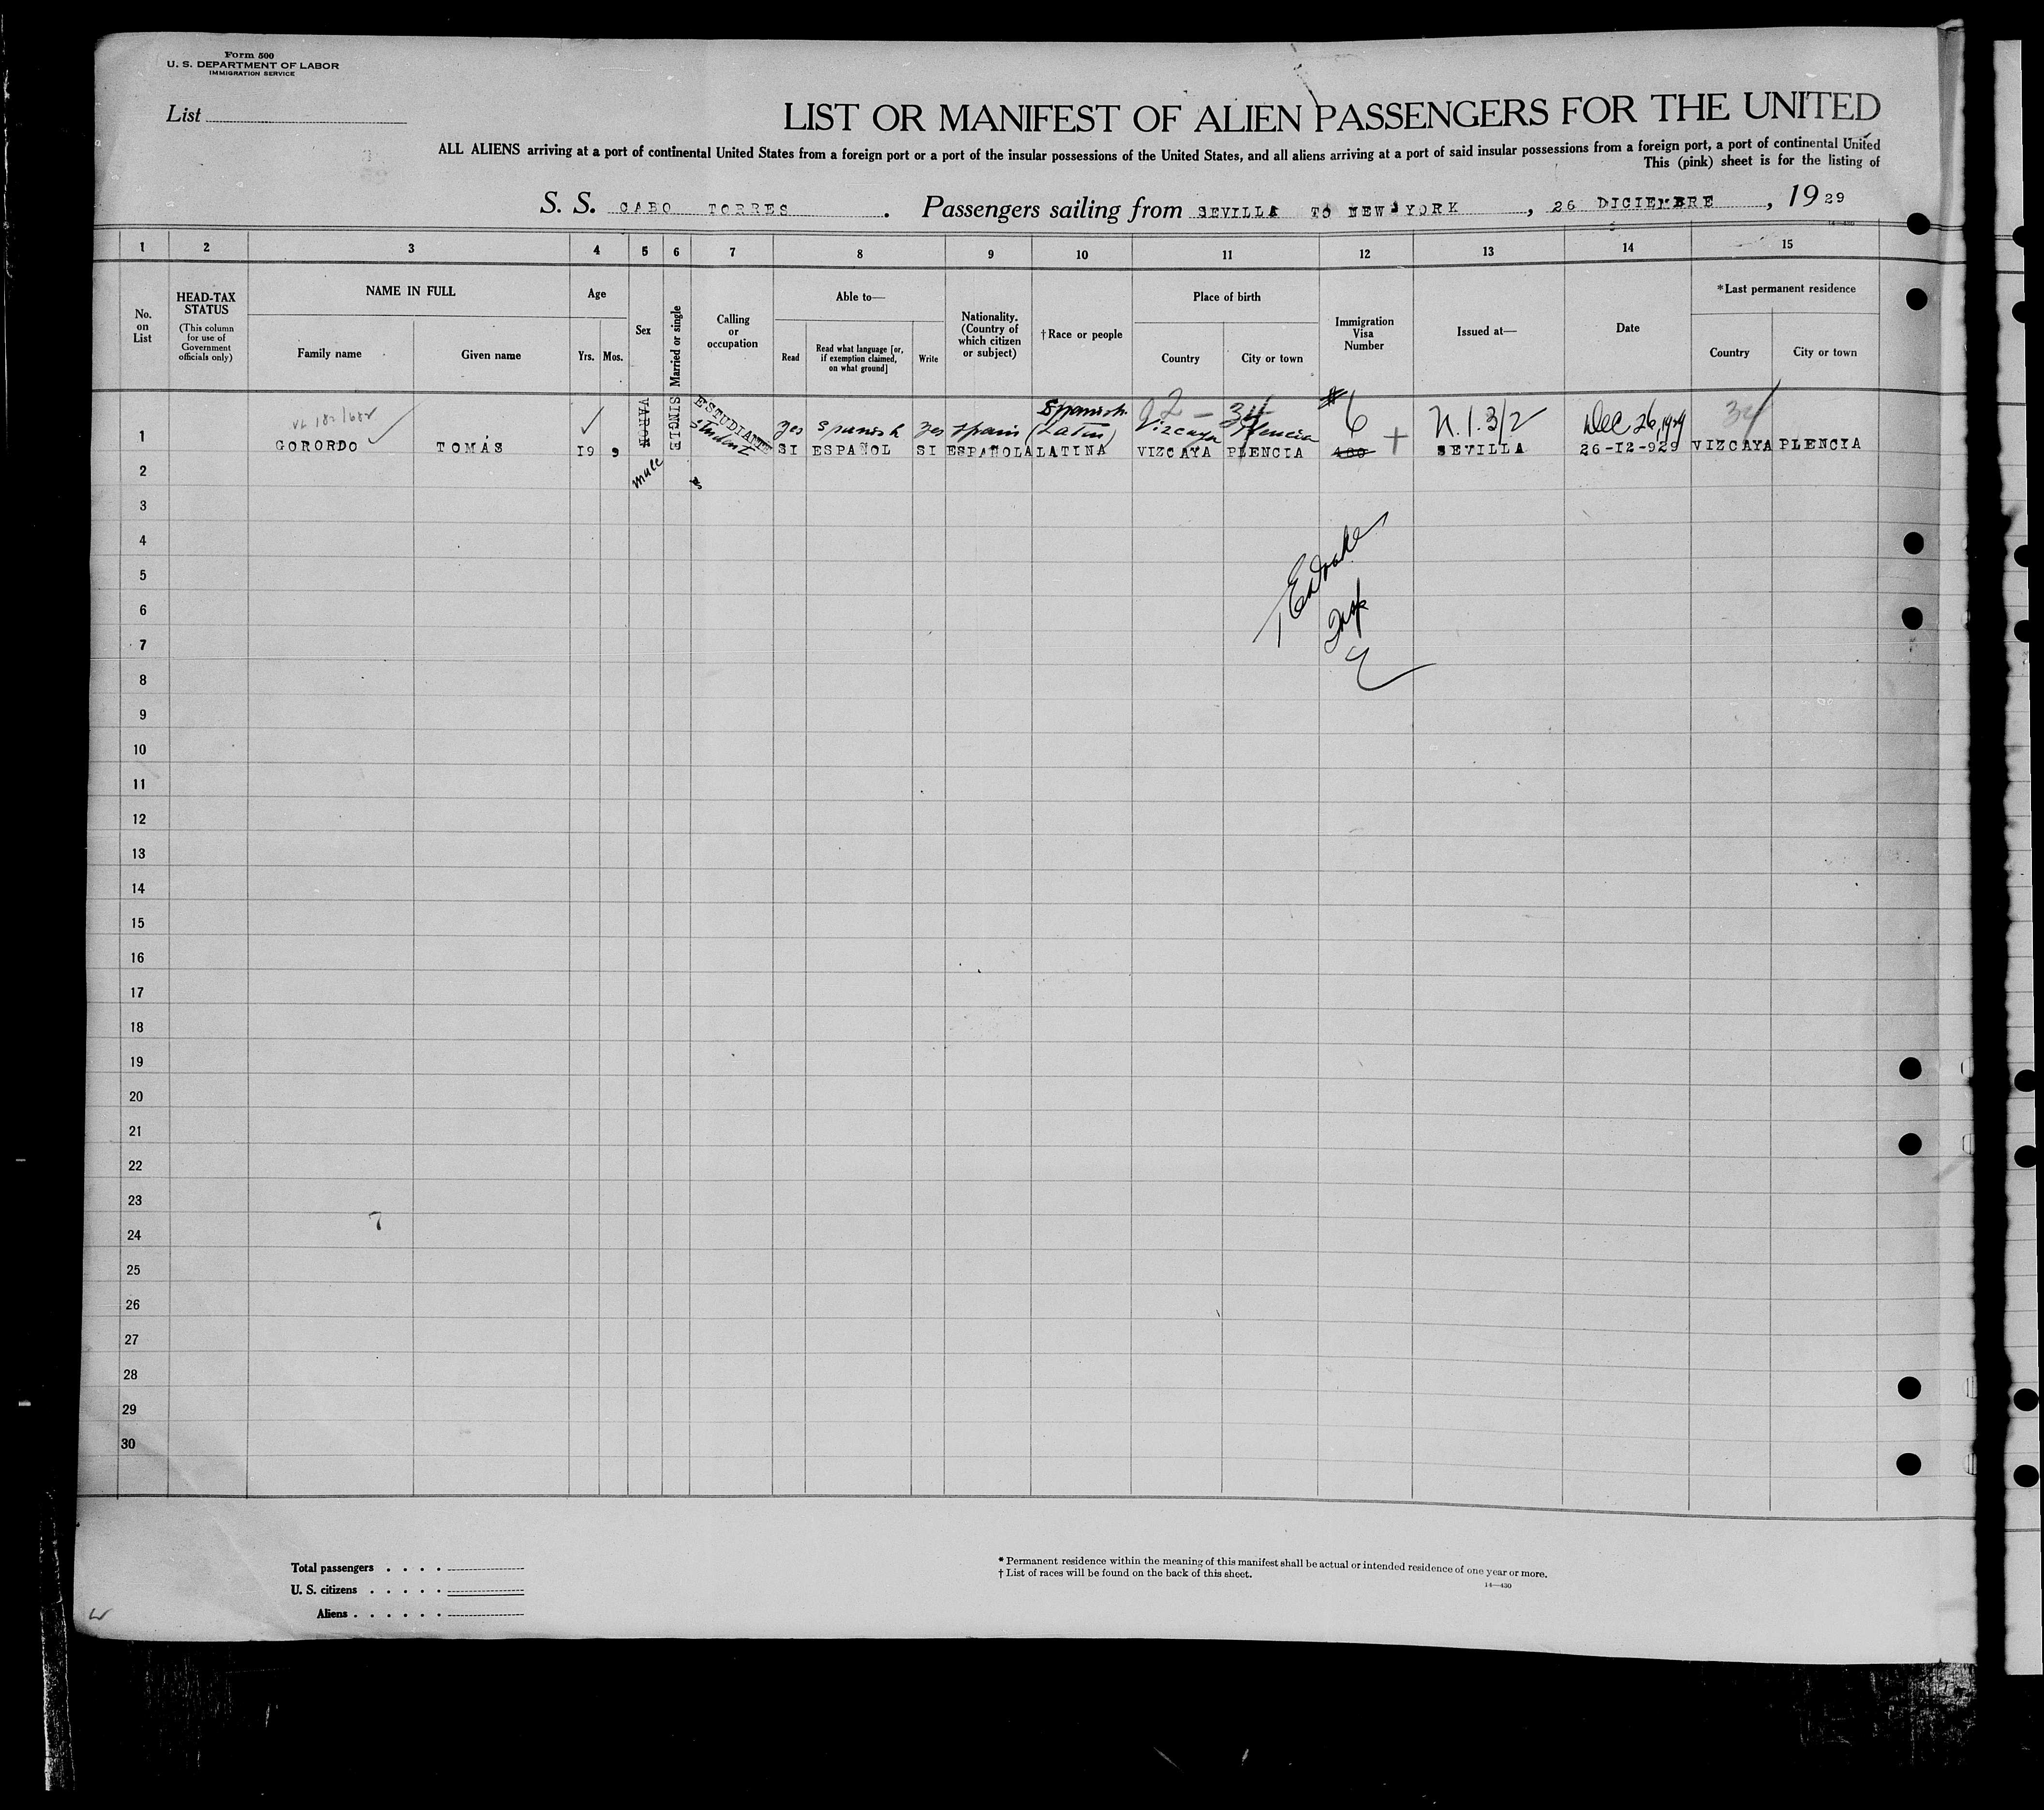 Form 500
U. S. DEPARTMENT OF LABOR
IMMIGRATION SERVICE
List
LIST OR MANIFEST OF ALIEN PASSENGERS FOR THE UNITED
ALL ALIENS arriving at a port of continental United States from a foreign port or a port of the insular possessions of the United States, and all aliens arriving at a port of said insular possessions from a foreign port, a port of continental United
This (pink) sheet is for the listing of
S. S. CABO TORRES. Passengers sailing from SEVILLA TO NEW YORK, 26 DICIEMBRE, 1929
14—430
1 2 3 4 5 6 7 8 9 10 11 12 13 14 15
No. on List
HEAD-TAX STATUS
(This column for use of Government officials only)
NAME IN FULL
Family name
Given name
Age
Yrs.
Mos.
Sex
Married or single
Calling or occupation
Able to—
Read
Read what language [or, if exemption claimed, on what ground]
Write
Nationality. (Country of which citizen or subject)
†Race or people
Place of birth
Country
City or town
Immigration Visa Number
Issued at—
Date
*Last permanent residence
Country
City or town
Spanish # 6
yes Spanish yes Spain (Latin) Vizcaya Plencia Dec 26, 1929 34
1 GORORDO TOMÁS 19 9 VARON SINGLE ESTUDIANTE SI ESPAÑOL SI ESPAÑOLA LATINA VIZCAYA PLENCIA SEVILLA 26-12-929 VIZCAYA PLENCIA
student
male
2
3
4
5
6
7
8
9
10
11
12
13
14
15
16
17
18
19
20
21
22
23
7
24
25
26
27
28
29
30
Total passengers . . . .
U. S. citizens . . . . .
Aliens . . . . . .
* Permanent residence within the meaning of this manifest shall be actual or intended residence of one year or more.
† List of races will be found on the back of this sheet.
14—430